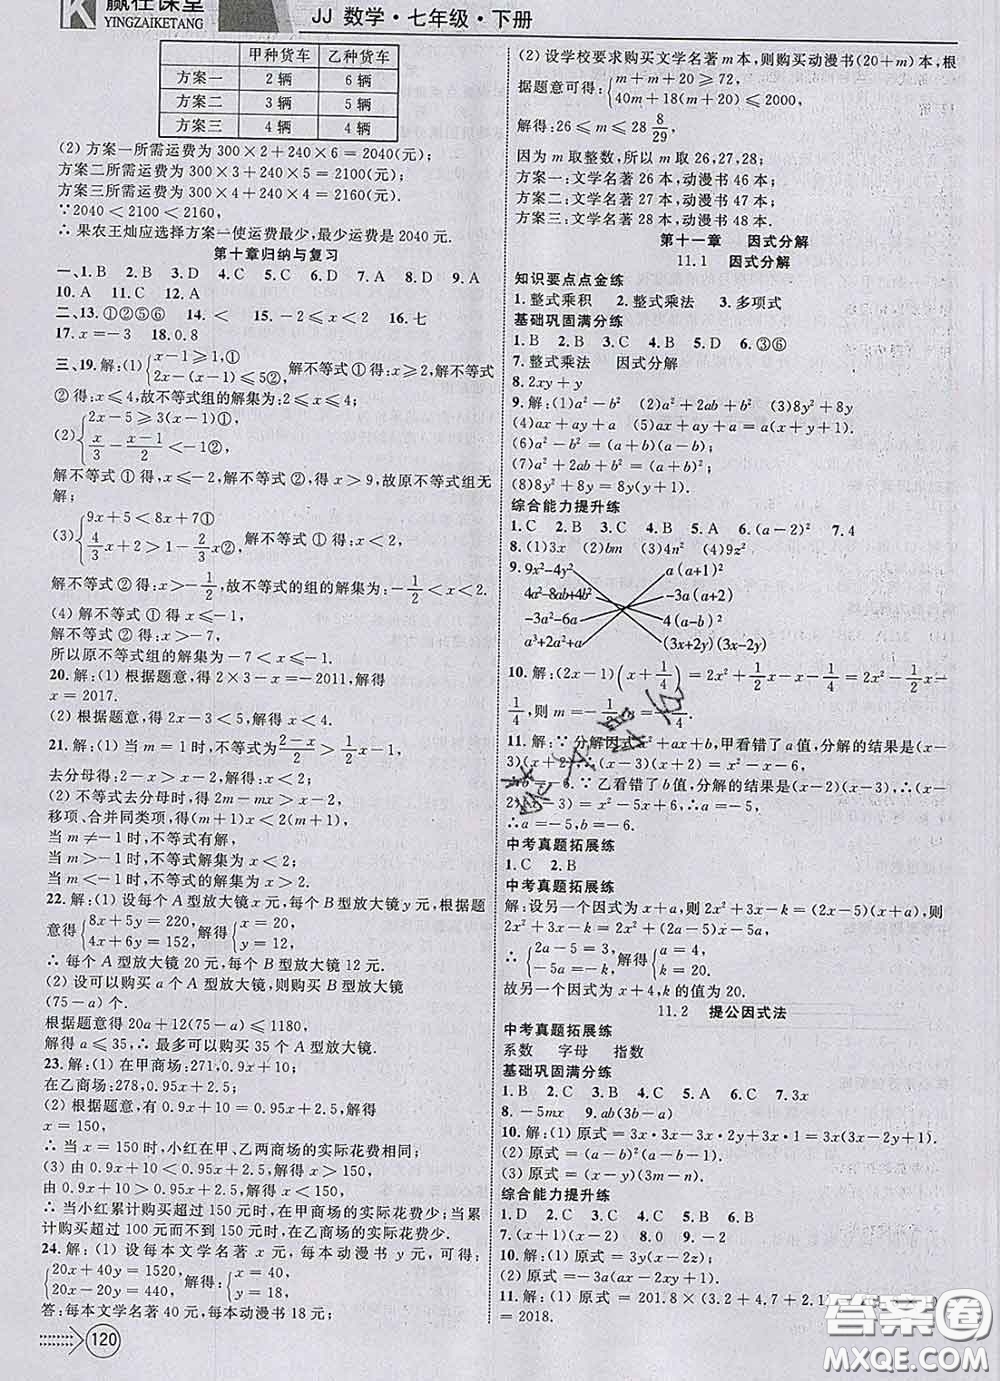 赢在课堂
YINGZAIKETANG
JJ 数学·七年级·下册
甲种货车 乙种货车
方案一 2 辆 6 辆
方案二 3 辆 5 辆
方案三 4 辆 4 辆
(2) 方案一所需运费为 300×2+240×6=2040(元);
方案二所需运费为 300×3+240×5=2100(元);
方案三所需运费为 300×4+240×4=2160(元).
∵2040<2100<2160,
∴ 果农王灿应选择方案一使运费最少,最少运费是 2040 元.
第十章归纳与复习
一、1. B 2. B 3. D 4. C 5. C 6. B 7. D 8. D 9. A
10. A 11. C 12. A
二、13. ①②⑤⑥ 14. < 15. -2≤x<2 16. 七
17. x=-3 18. 0.8
三、19. 解:(1) {x-1≥1,① 2x-(x-1)≤5②, 解不等式①得:x≥2,解不等式②
得:x≤4,故不等式组的解集为:2≤x≤4;
(2) {2x-5≥3(x-1)①, x/3-(x-1)/2<-1②,
解不等式 ① 得,x≤-2,解不等式 ② 得:x>9,故原不等式组无
解;
(3) {9x+5<8x+7① 4/3x+2>1-2/3x②,
解不等式 ② 得:x>-1/2,故不等式的组的解集为:-1/2<x<2.
(4) 解不等式 ① 得:x<3,
解不等式 ② 得:x>-7,
所以原不等式组的解集为-7<x<3.
20. 解:(1) 根据题意,得 2×3-x=-2011,解得
x=2017.
(2) 根据题意,得 2x-3<5,解得 x<4.
21. 解:(1) 当 m=1 时,不等式为(2-x)/2>1/2x-1,
去分母得:2-x>x-2,解得:x<2;
(2) 不等式去分母时,得 2m-mx>x-2,
移项、合并同类项,得(m+1)x<2(m+1),
当 m≠-1 时,不等式有解,
当 m>-1 时,不等式解集为 x<2;
当 m<-1 时,不等式的解集为 x>2.
22. 解:(1) 设每个 A 型放大镜 x 元,每个 B 型放大镜 y 元,根据题
意得{8x+5y=220, 4x+6y=152, 解得:{x=20, y=12,
∴ 每个 A 型放大镜 20 元,每个 B 型放大镜 12 元.
(2) 设可以购买 A 型放大镜 a 个,则购买 B 型放大镜
(75-a) 个.
根据题意得 20a+12(75-a)≤1180,
解得 a≤35,∴ 最多可以购买 35 个 A 型放大镜.
23. 解:(1) 在甲商场:271,0.9x+10;
在乙商场:278,0.95x+2.5.
(2) 根据题意,有 0.9x+10=0.95x+2.5,解得
x=150,
∴ 当 x=150 时,小红在甲、乙两商场的实际花费相同;
(3) 由 0.9x+10<0.95x+2.5,解得 x>150,
由 0.9x+10>0.95x+2.5,解得 x<150,
∴ 当小红累计购物超过 150 元时,在甲商场的实际花费少;当累
计购买超过 100 元而不到 150 元时,在乙商场的实际花费少.
24. 解:(1) 设每本文学名著 x 元,每本动漫书 y 元,可得:
{20x+40y=1520, 20x-20y=440, 解得:{x=40, y=18,
答:每本文学名著 40 元,每本动漫书 18 元;
120
(2) 设学校要求购买文学名著 m 本,则购买动漫书(20+m)本,根
据题意可得:{m+m+20≥72, 40m+18(m+20)≤2000,
解得:26≤m≤28 8/29
因为 m 取整数,所以 m 取 26,27,28;
方案一:文学名著 26 本,动漫书 46 本;
方案二:文学名著 27 本,动漫书 47 本;
方案三:文学名著 28 本,动漫书 48 本.
第十一章 因式分解
11.1 因式分解
知识要点点金练
1. 整式乘积 2. 整式乘法 3. 多项式
基础巩固满分练
1. B 2. B 3. C 4. B 5. D 6. ③⑥
7. 整式乘法 因式分解
8. 2xy+y
9. 解:(1)a²-b² (2)a²+2ab+b² (3)8y²+8y
(4)ax+ay+a (5)ax+ay+a=a(x+y+1)
(6)a²-b²=(a+b)(a-b)
(7)a²+2ab+b²=(a+b)²
(8)8y²+8y=8y(y+1).
综合能力提升练
1. C 2. B 3. C 4. B 5. A 6. (a-2)² 7. 4
8. (1)3x (2)bm (3)4n² (4)9z²
9. 9x²-4y² a(a+1)²
4a²-8ab+4b² -3a(a+2)
-3a²-6a 4(a-b)²
a³+2a²+a (3x+2y)(3x-2y)
10. 解:(2x-1)(x+1/4)=2x²+1/2x-x-1/4=2x²-1/2x-
1/4,则 m=-1/2,n=-1/4.
11. 解:∵ 分解因式x²+ax+b,甲看错了 a值,分解的结果是(x-
3)(x+2),∴(x-3)(x+2)=x²-x-6,
∴b=-6.∵ 乙看错了 b值,分解的结果是(x-2)(x-3),∴(x-
2)(x-3)=x²-5x+6,
∴a=-5,b=-6.
中考真题拓展练
1. C 2. B
中考真题拓展练
解:设另一个因式为 x+a,则 2x²+3x-k=(2x-5)(x+a),则
2x²+3x-k=2x²+(2a-5)x-5a,
∴ {2a-5=3, -5a=-k, 解得{a=4, k=20,
故另一个因式为 x+4,k 的值为 20.
11.2 提公因式法
中考真题拓展练
系数 字母 指数
基础巩固满分练
1. B 2. C 3. D 4. C 5. A 6. C 7. 3x
8. -5mx 9. ab(3b-a)
10. 解:(1) 原式=3x·3x-3x·2y+3x·1=3x(3x-2y+1).
(2) 原式=(a-b)²(a-b-b).
(3) 原式=(x-y)(m-y).
综合能力提升练
1. D 2. C 3. C 4. B 5. B 6. B
7. (x+1)(x-2) 8. 0 9. -2
10. 解:(1) 原式=3y(y-2x).
(2) 原式=-11a(a-b)².
11. 解:(1) 原式=201.8×(3.2+4.7+2.1)
=2018.
答案圈
MXQE.COM